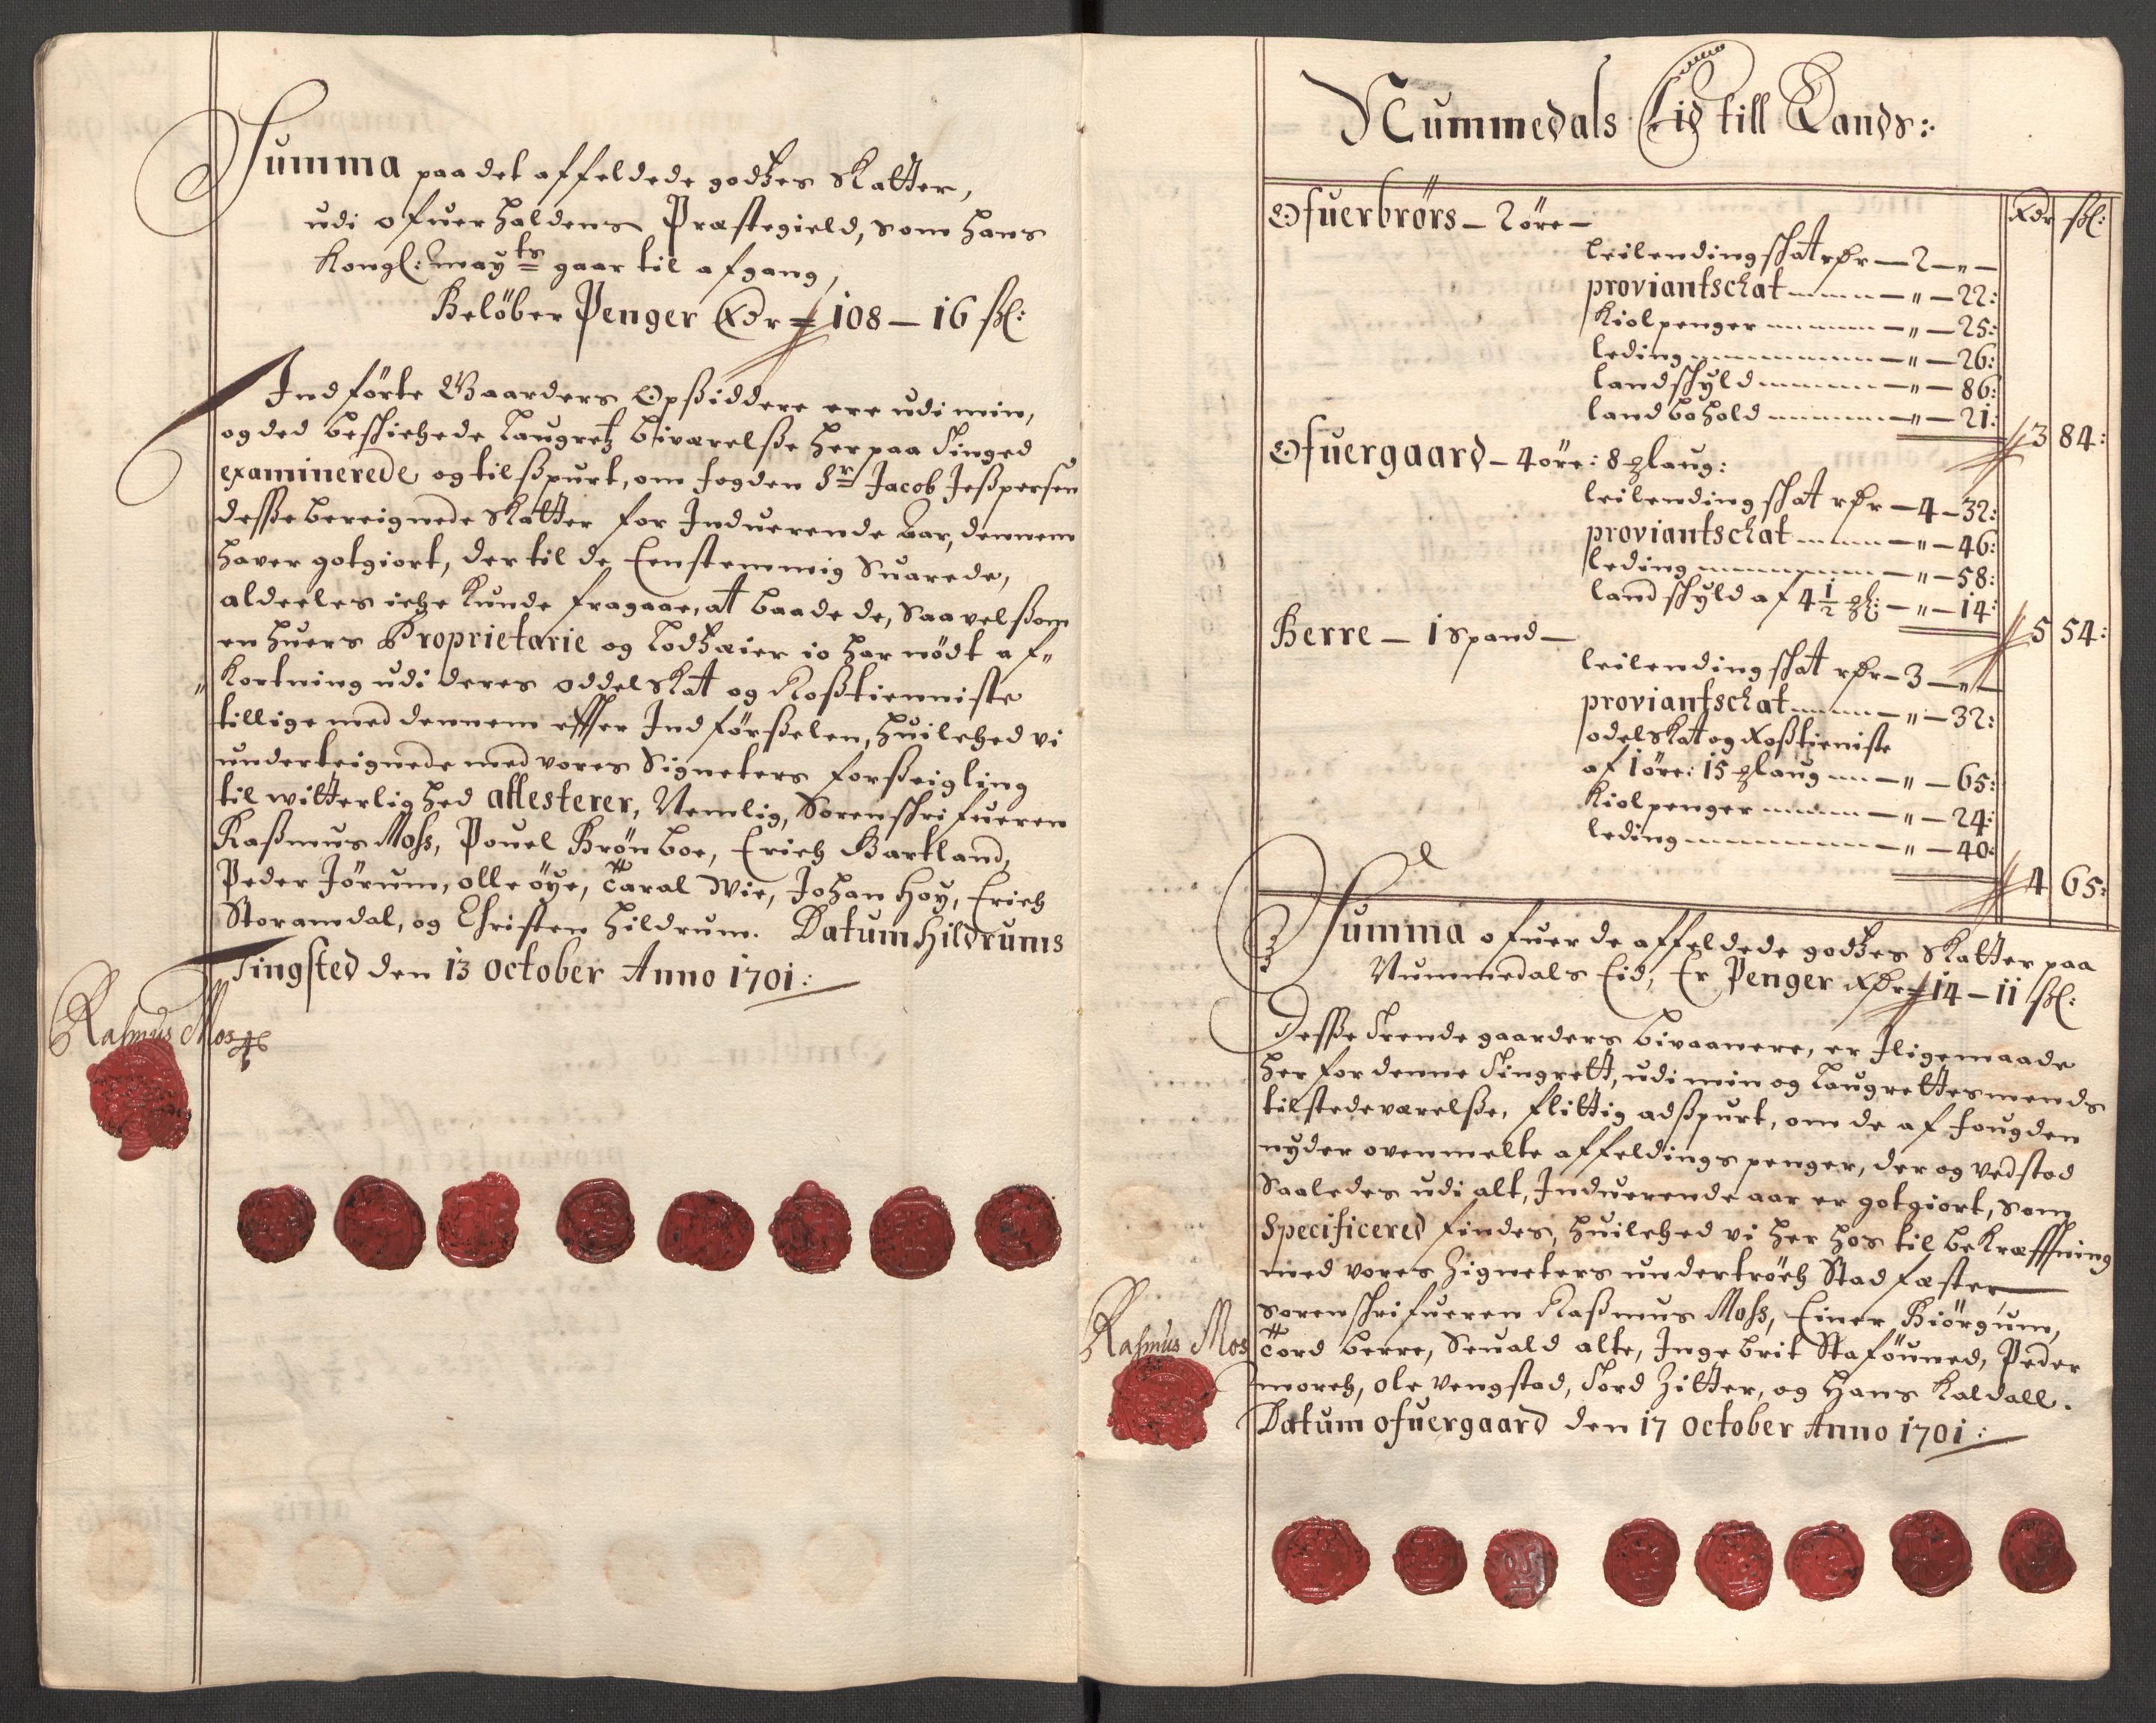 Summa paa det affeldede godtzes Skatter,
udi ofuerhaldens Præstegield, som hans
Kongl: mayts gaar til afgang,
Belöber Penger Rdr 108 – 16 sl:
Indförte Gaarders Opsiddere ere udi min,
og ded beschichede Laugretz biværelsse her paa Tinged
examinerede og tilspurt, om fogden Sr Jacob Jesspersen
desse bereignede Skatter for Induerende Aar, dennem
haver gotgiort, der til de Eenstemmig Suarede,
aldeeles iche kunde fragaae, at baade de, saavelsom
en huers Proprietarie og Lodtzæier jo har nödt af„
„kortning udi deres oddelskat og Rosstienniste
tillige med dennem effter Indförsselen, huilched vi
underteignede med vores Signeters forsseigling
til witterlighed attesterer, Nemlig, Sorenschrifueren
Rassmus Moss, Pouel Brönboe, Erich Bartland,
Peder Jörum, olle öye, Caral Wie, Johan Hoy, Erich
Storamdal, og Christen Hildrum. Datum Hildrums
Tingsted den 13 October Anno 1701:
Rasmus Mos
Nummedals Eid till Lands:
Rdr sl:
Ofuerbrörs – 2 öre –
leilendingschat rdr – 2 – „ –
proviantschat – „ – 22:
Kiolpenger – „ – 25:
leding – „ – 26:
landschyld – „ – 86:
landbohold – „ – 21:
3 84:
Ofuergaard – 4 öre: 8 mlaug:
leilendingschat rdr – 4 – 32:
proviantschat – „ – 46:
leding – „ – 58:
landschyld af 4 1/2 ml: – „ – 14:
5 54:
Berre – 1 spand –
leilendingschat rdr – 3 – „ –
proviantschat – „ – 32:
odelskat og Rosstieniste
af 1 öre: 15 mlaug – „ – 65:
Kiolpenger – „ – 24:
leding – „ – 40:
4 65:
Summa ofuer de affeldede godtzes Skatter paa
Nummedals Eid, Er Penger Rdr 14 – 11 sl:
Desse Trende gaarders bivaanere, er Iligemaade
her for denne Tingrett, udi min og Laugrettesmends
tilstedeværelsse, flittig adspurt, om de af fougden
nyder ovenmelte affeldings penger, der og vedstod
Saaledes udi alt, Induerende aar er gotgiort, som
Specificered findes, huilched vi her hos til bekræfftning
med vores Zigneters undertröch Stadfæster
Sorenschrifueren Rassmus Moss, Einer Biörgum,
Tord Berre, Seuald alte, Ingebrit Staföuned, Peder
moreh, ole Vengstad, Tord Zitter, og Hans Kaldall.
Datum ofuergaard den 17 October Anno 1701:
Rasmus Mos